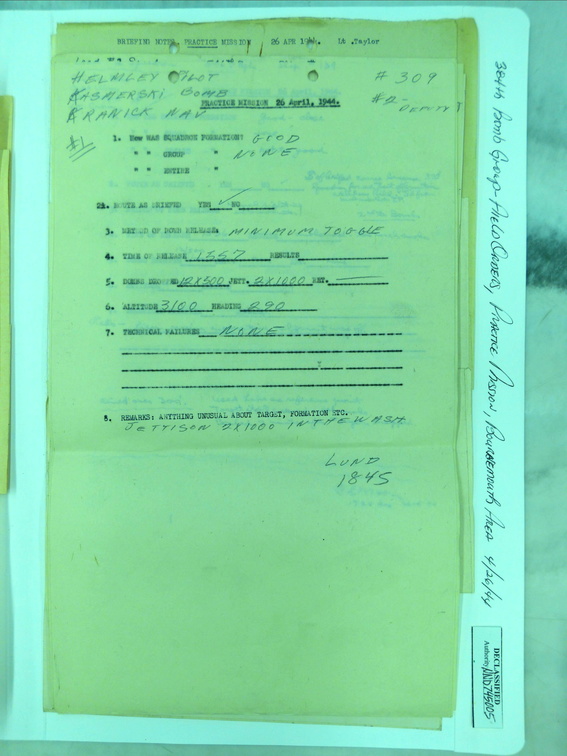 BRIEFING NOTES PRACTICE MISSION 26 APR 1944 Lt .Taylor
HELMLEY PILOT # 309
KASMERSKI BOMB #2- DEPUTY
PRACTICE MISSION 26 April, 1944.
KRANICK NAV
#1
1. How WAS SQUADRON FORMATION? GOOD
" " GROUP " NONE
" " ENTIRE "
2. ROUTE AS BRIEFED YES ✓ NO
3. METHOD OF BOMB RELEASE MINIMUM TOGGLE
4. TIME OF RELEASE 1557 RESULTS
5. BOMBS DROPPED 12X500 JETT. 2X1000 RET.
6. ALTITUDE 3100 HEADING 290
7. TECHNICAL FAILURES NONE
8. REMARKS: ANYTHING UNUSUAL ABOUT TARGET, FORMATION ETC.
JETTISON 2X1000 IN THE WASH
LUND
1845
384th Bomb Group - Field Orders, Practice Mission, Bournemouth Area 4/26/44
DECLASSIFIED
Authority NND 745005